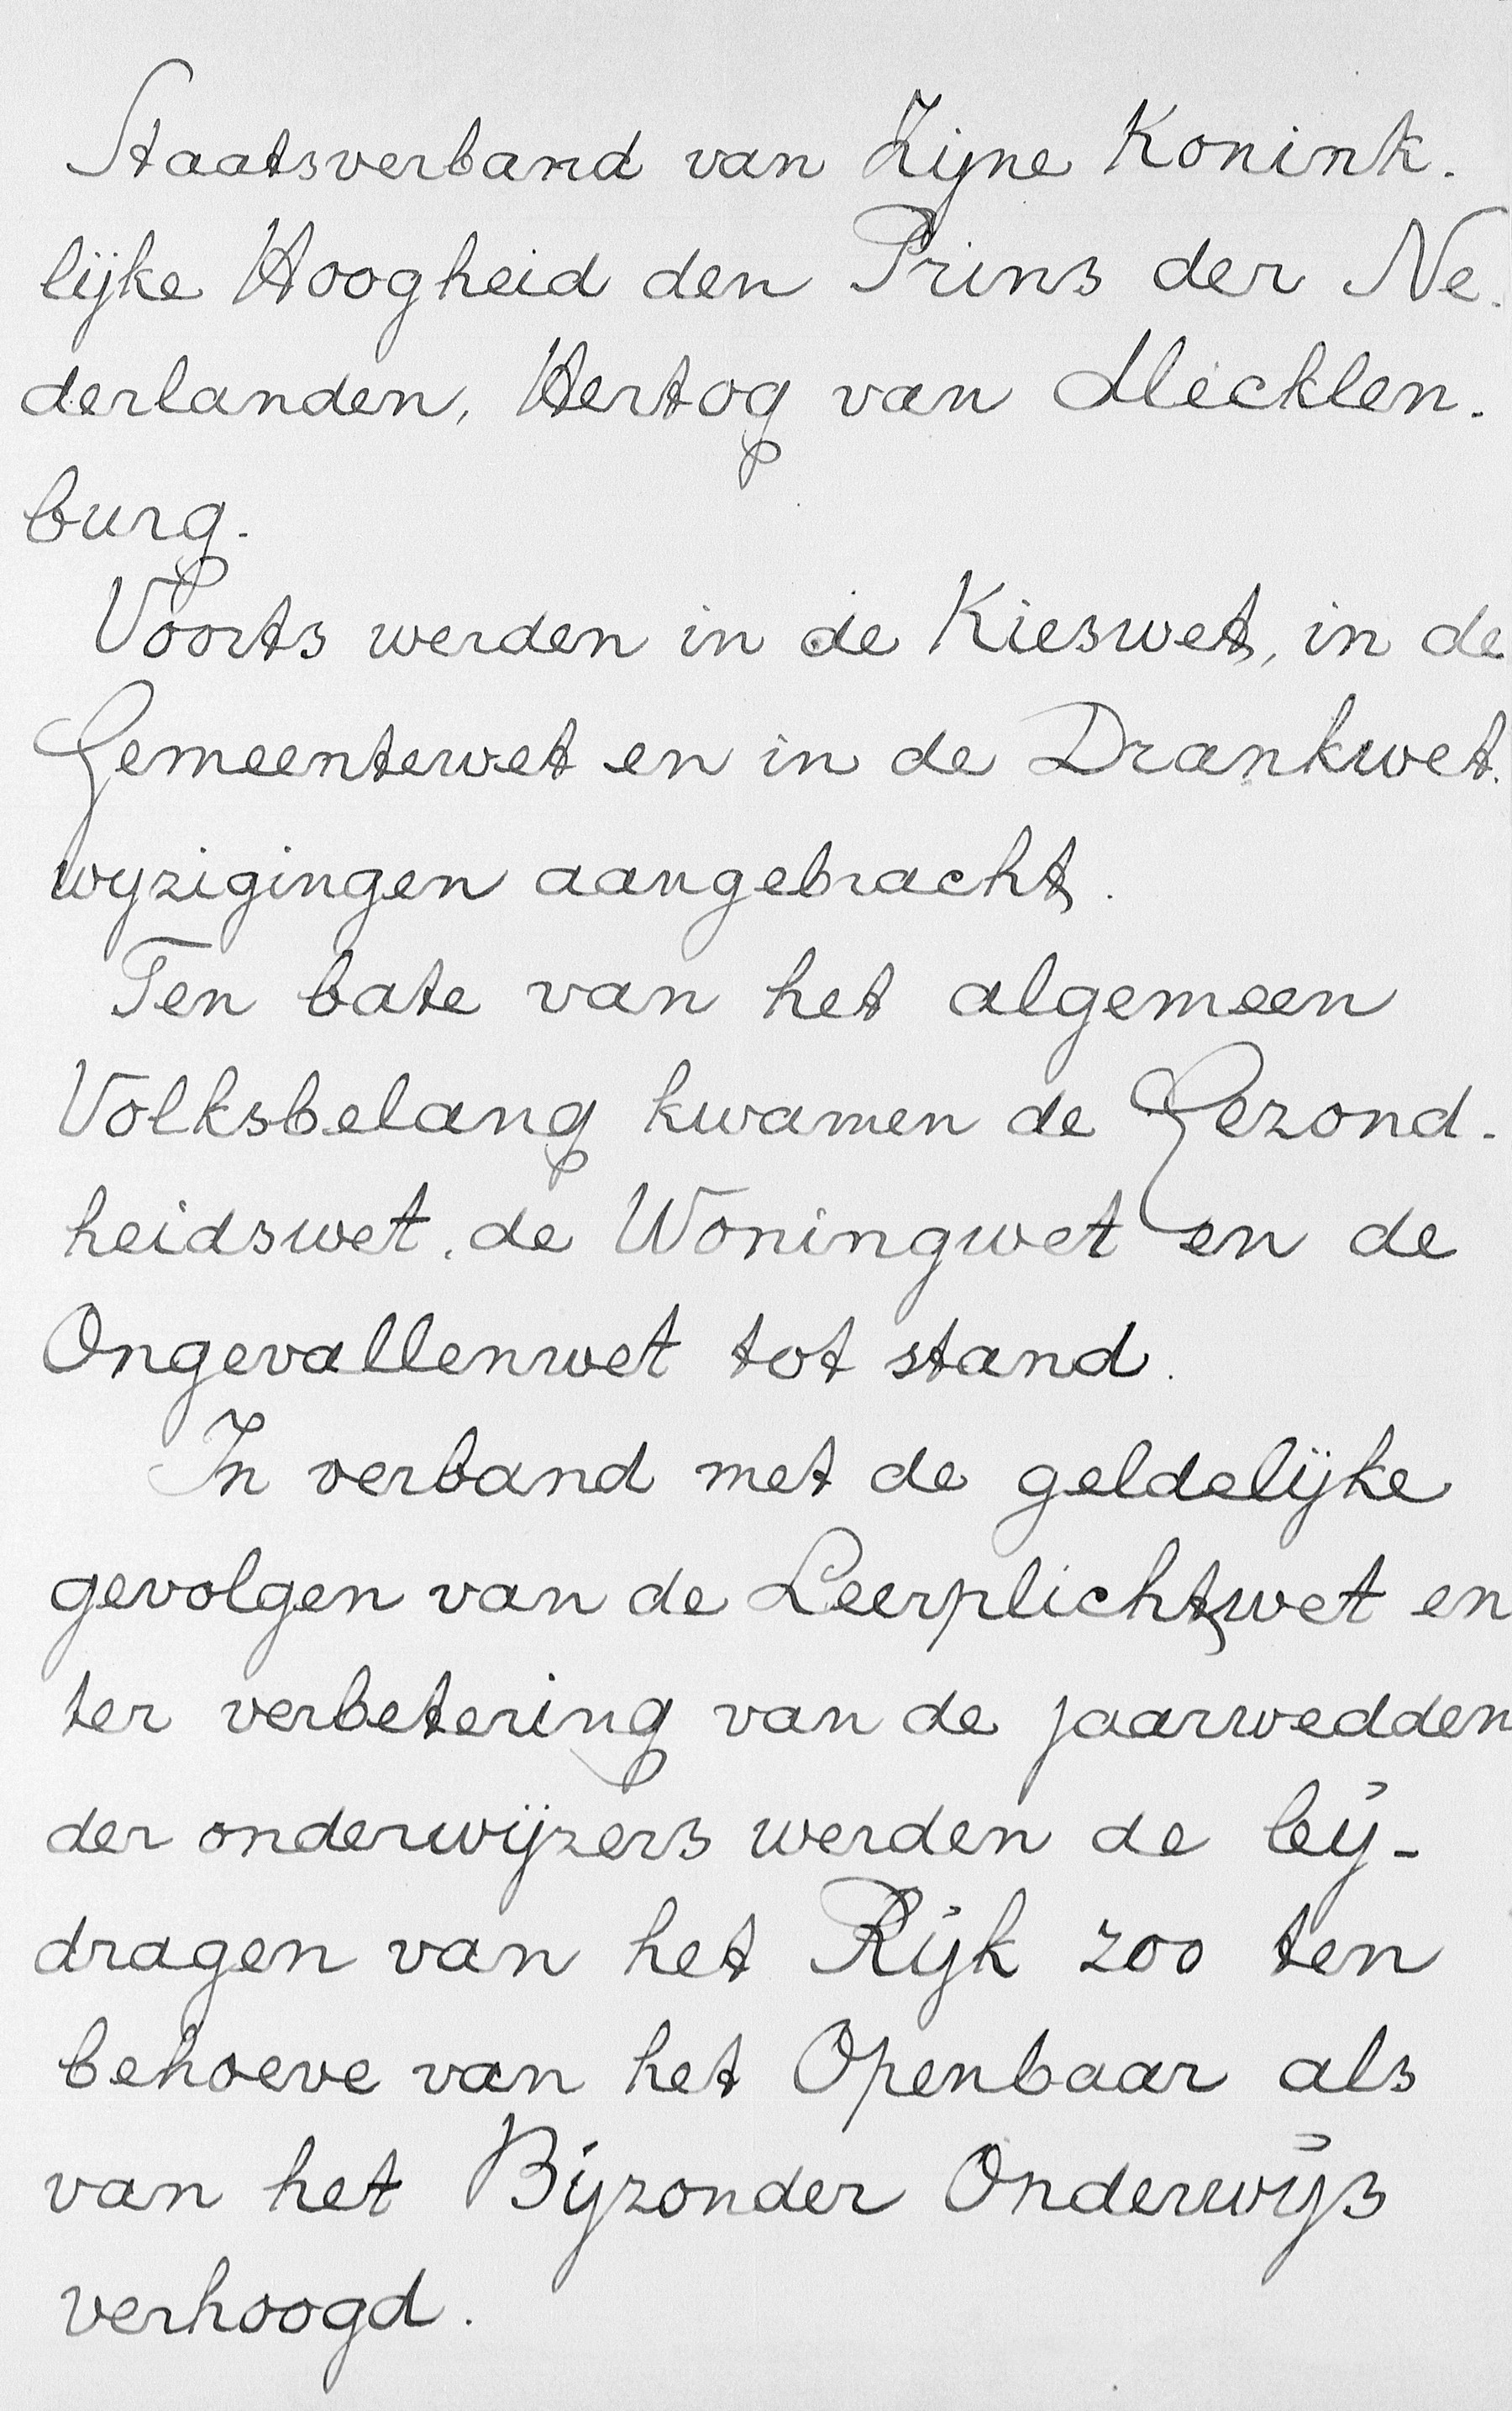 Staatsverband van Zijne Konink-
lijke Hoogheid den Prins der Ne-
derlanden, Hertog van Mecklen-
burg.
Voorts werden in de Kieswet, in de
Gemeentewet en in de Drankwet
wyzigingen aangebracht.
Ten bate van het algemeen
Volksbelang kwamen de Gezond-
heidswet, de Woningwet en de
Ongevallenwet tot stand.
In verband met de geldelijke
gevolgen van de Leerplichtwet en
ter verbetering van de jaarwedden
der onderwijzers werden de bij-
dragen van het Rijk zoo ten
behoeve van het Openbaar als
van het Bijzonder Onderwijs
verhoogd.